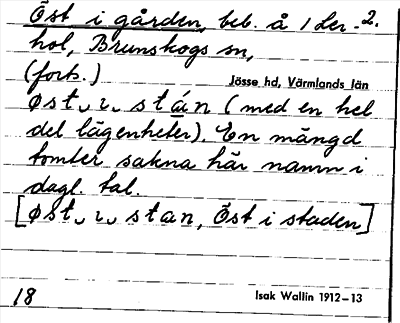 Öst i gården, beb. å 1 Ler-2.
hol, Brunskogs sn,
(forts.)
Jösse hd, Värmlands län
øst ͜ ɩ ͜ stán (med en hel
del lägenheter). En mängd
tomter sakna här namn i
dagl. tal.
[øst ͜ ɩ ͜ stan, Öst i staden]
18
Isak Wallin 1912–13